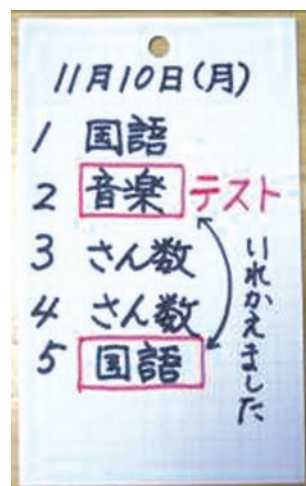 11月10日(月)
1 国語
2 音楽 テスト
3 さん数
4 さん数
5 国語
いれかえました